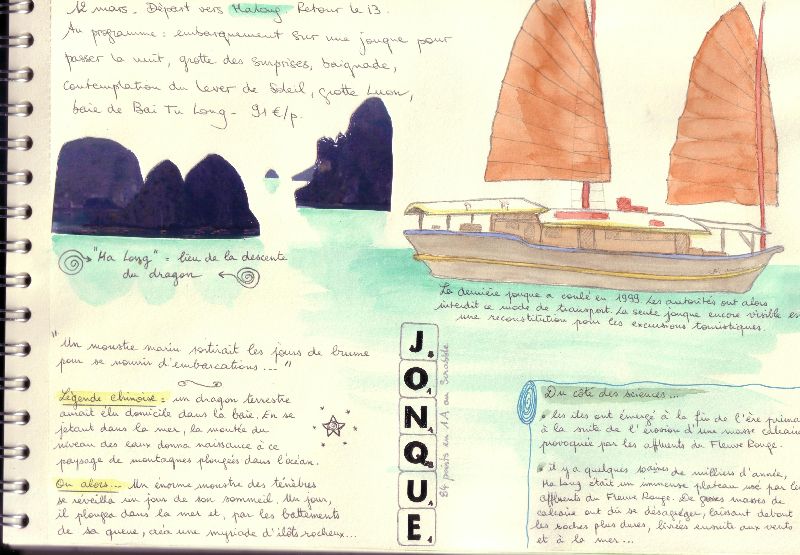 12 mars. Départ vers Halong - Retour le 13.
Au programme : embarquement sur une jonque pour
passer la nuit, grotte des surprises, baignade,
contemplation du lever de Soleil, grotte Luon,
baie de Bai Tu Long - 91 €/p.
"Ha Long" = lieu de la descente
du dragon
La dernière jonque a coulé en 1999. Les autorités ont alors
interdit ce mode de transport. La seule jonque encore visible est
une reconstitution pour les excursions touristiques.
"Un monstre marin sortirait les jours de brume
pour se nourrir d'embarcations... "
Légende chinoise : un dragon terrestre
aurait élu domicile dans la baie. En se
jetant dans la mer, la montée du
niveau des eaux donna naissance à ce
paysage de montagnes plongées dans l'océan.
Ou alors... Un énorme monstre des ténèbres
se réveilla un jour de son sommeil. Un jour,
il plongea dans la mer et, par les battements
de sa queue, créa une myriade d'îlots rocheux...
JONQUE
84 points en 1A au Scrabble
Du côté des sciences...
• les îles ont émergé à la fin de l'ère prima
à la suite de l'érosion d'une masse calcaire
provoquée par les affluents du Fleuve Rouge.
• il y a quelques dizaines de milliers d'année,
Ha Long était un immense plateau usé par les
affluents du Fleuve Rouge. De grosses masses de
calcaire ont dû se désagréger, laissant debout
les roches plus dures, livrées ensuite aux vents
et à la mer...